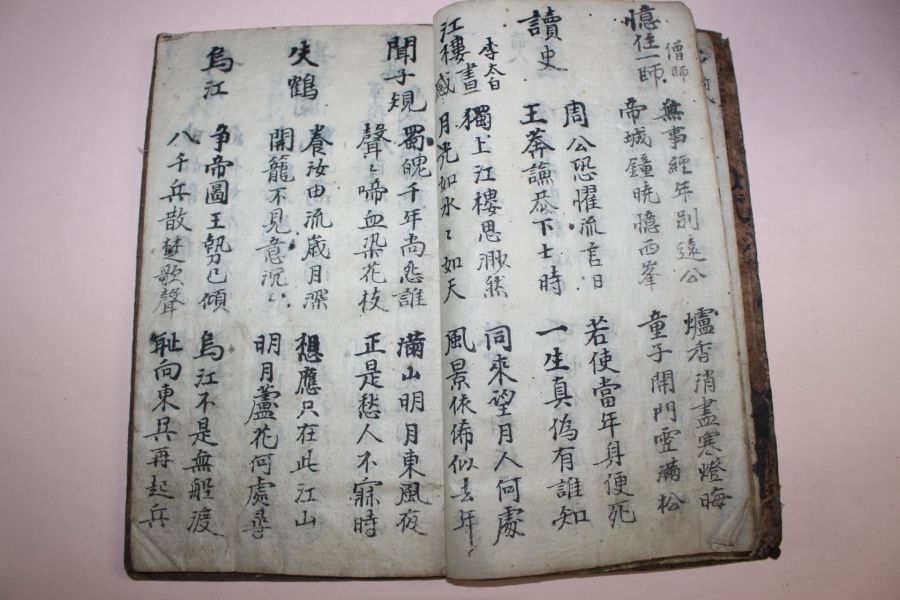 憶住一師
僧師
無事經年別遠公 爐香消盡寒燈晦
帝城鐘曉憶西峯 童子開門雪滿松
讀史
周公恐懼流言日 若使當年身便死
王莽謙恭下士時 一生真偽有誰知
李太白
江樓晝感
獨上江樓思渺然 同來望月人何處
月光如水〻如天 風景依俙似去年
聞子規
蜀魄千年尚怨誰 滿山明月東風夜
聲〻啼血染花枝 正是愁人不寐時
失鶴
養汝由流歲月深 想應只在此江山
開籠不見意沉〻 明月蘆花何處尋
烏江
争帝圖王勢已傾 烏江不是無船渡
八千兵散楚歌聲 耻向東吳再起兵